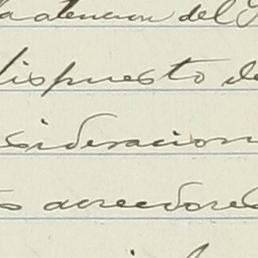 la atencion del S
dispuesto de
sideracion
s acreedores